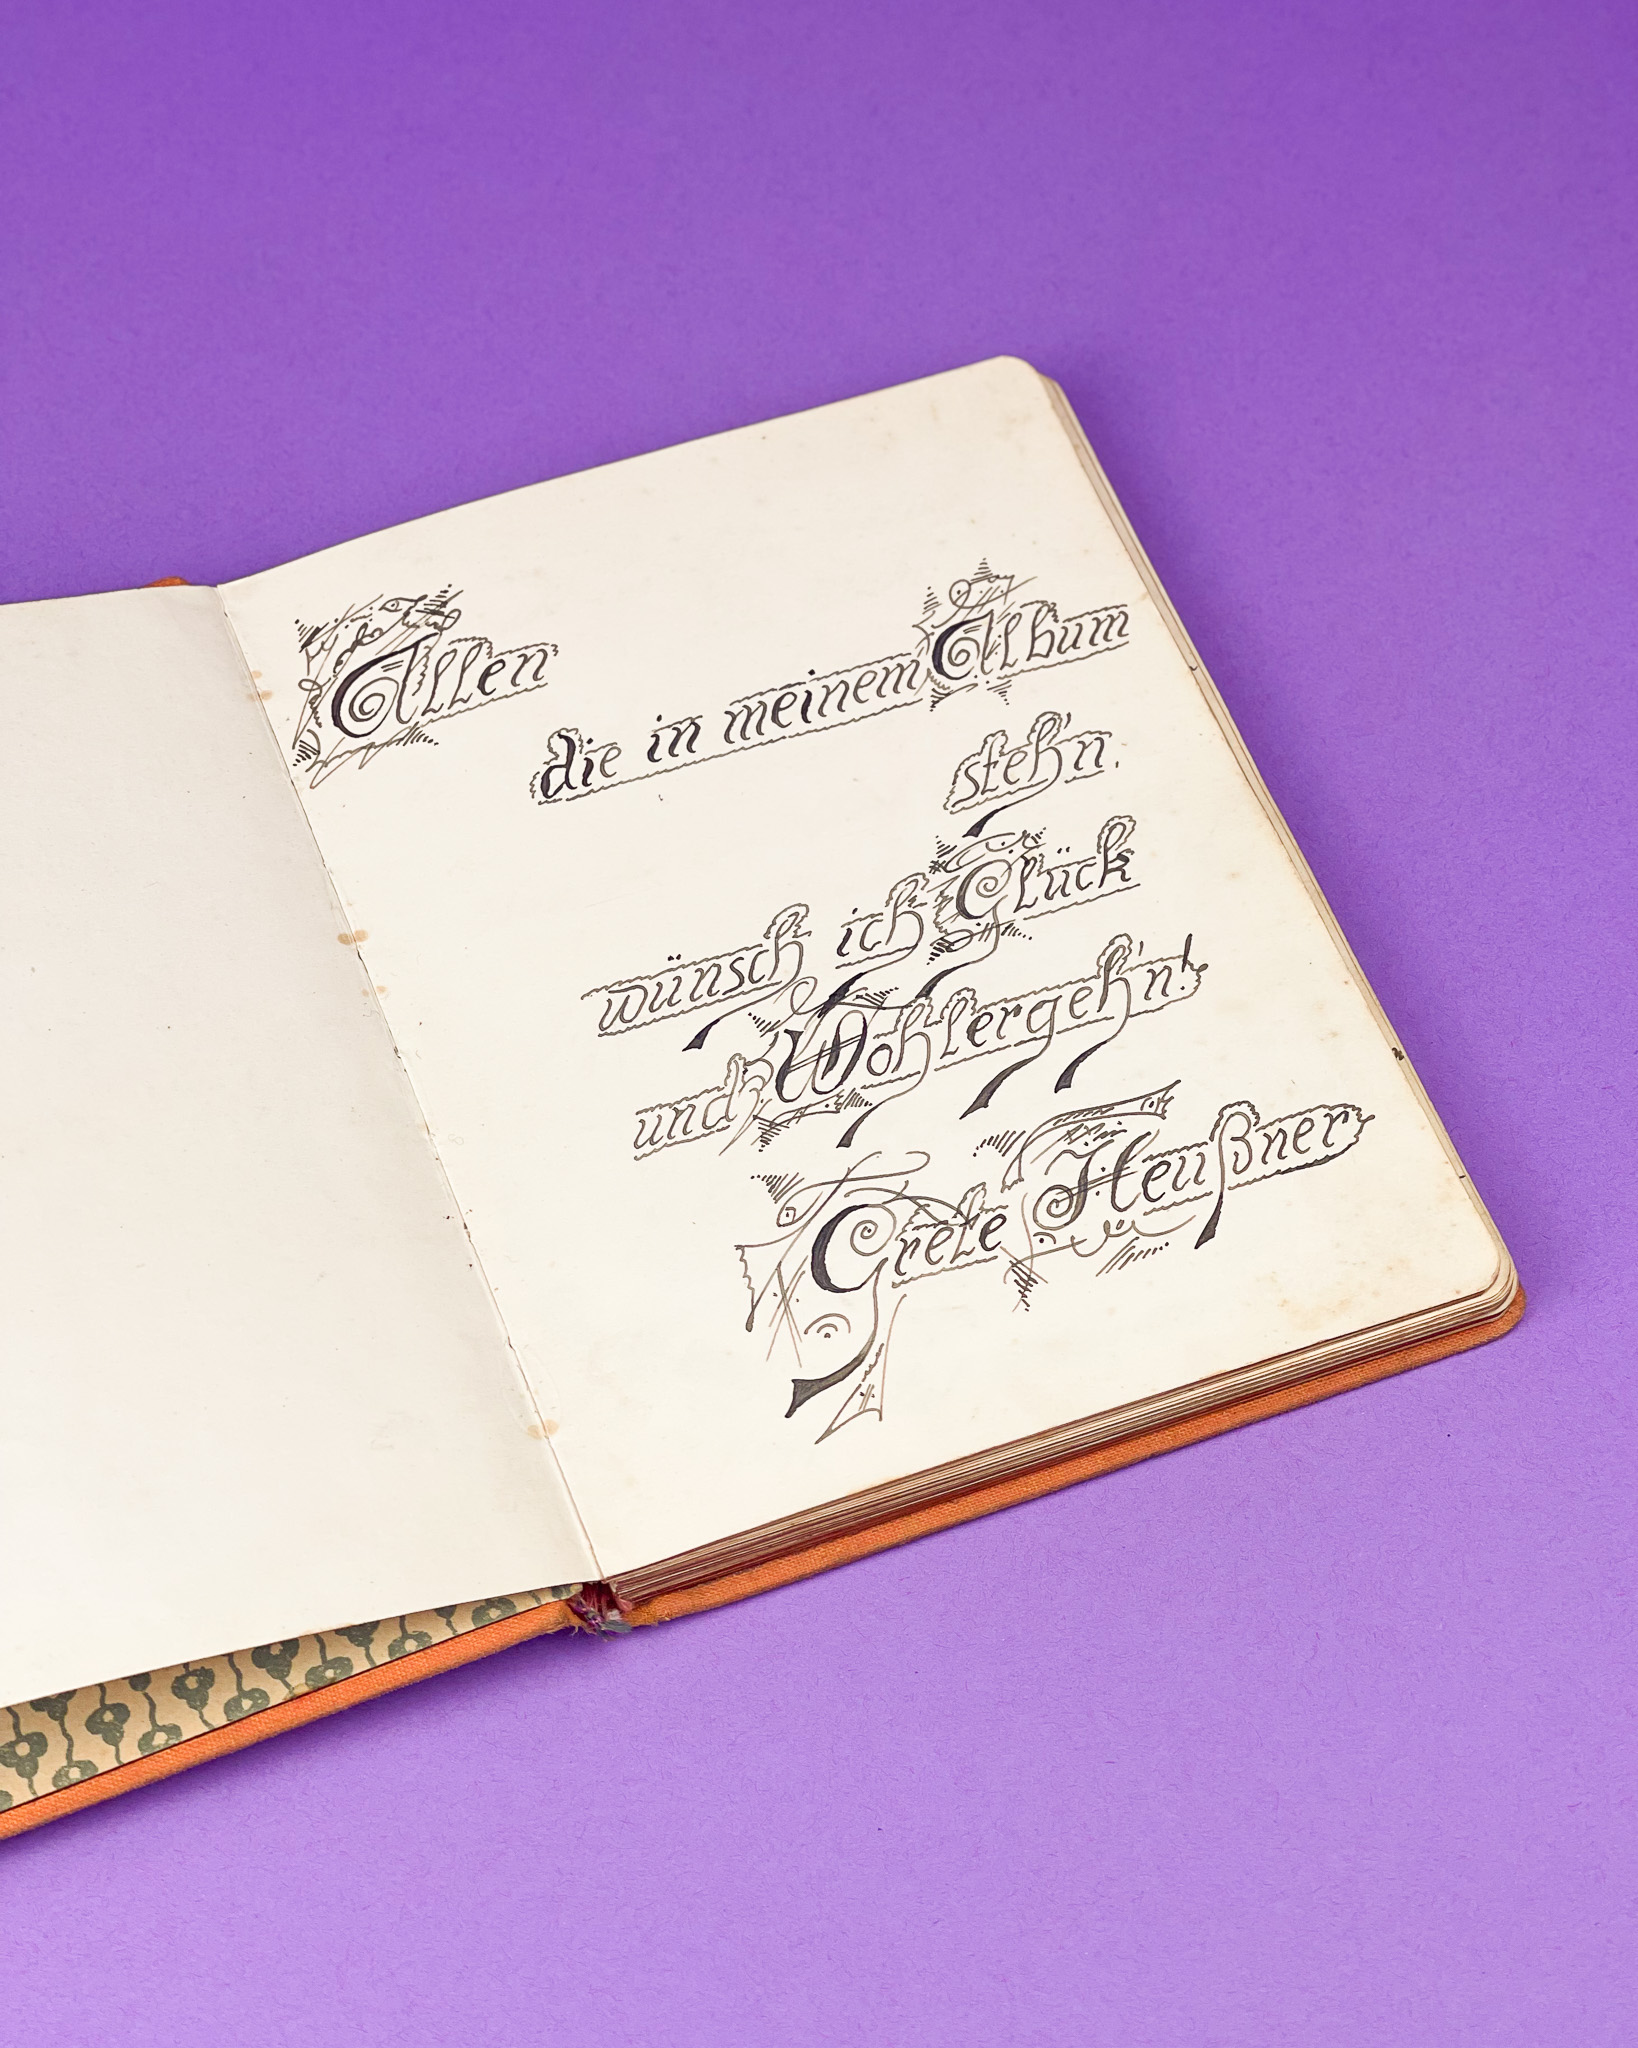 Allen
die in meinem Album
steh'n,
wünsch ich Glück
und Wohlergeh'n!
Grete Heußner